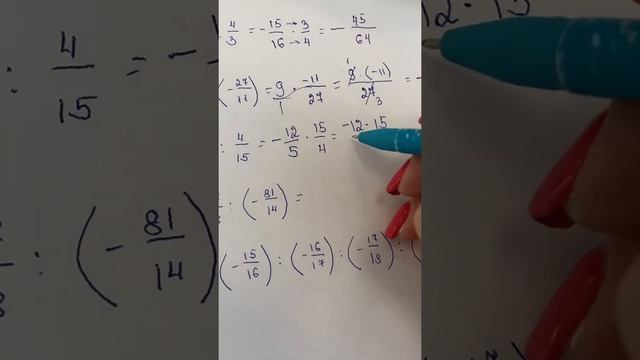 4/3 = -15/16 · 3/4 = -45/64
(-27/11) = 9/1 · -11/27 = 9·(-11)/27 3 = -
: 4/15 = -12/5 · 15/4 = -12·15
: (-81/14) =
(-15/16) : (-16/17) : (-17/18) : (